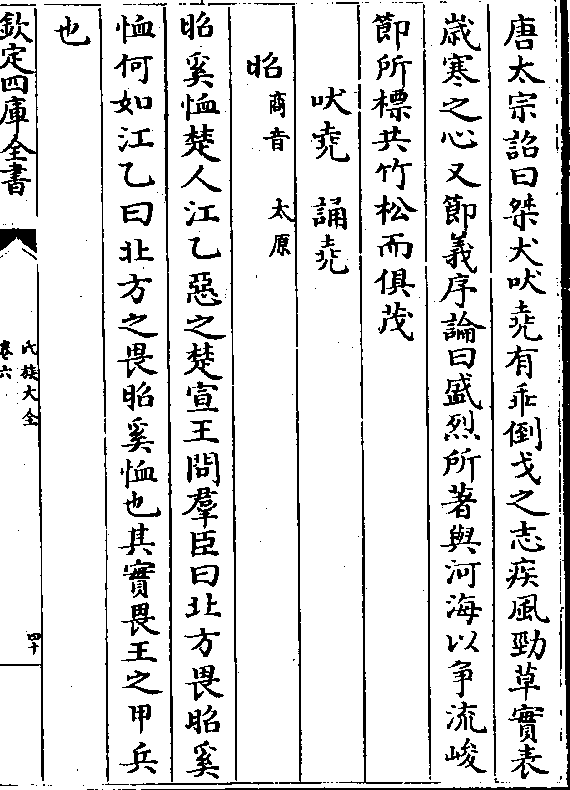 唐太宗詔曰桀犬吠堯有乖倒戈之志疾風勁草實表
歳寒之心又節義序論曰盛烈所著與河海以争流峻
節所標共竹松而俱茂
吠堯　誦堯
昭　商音　太原
昭奚恤楚人江乙惡之楚宣王問羣臣曰北方畏昭奚
恤何如江乙曰北方之畏昭奚恤也其實畏王之甲兵
也
欽定四庫全書
氏族大全
卷六
四十